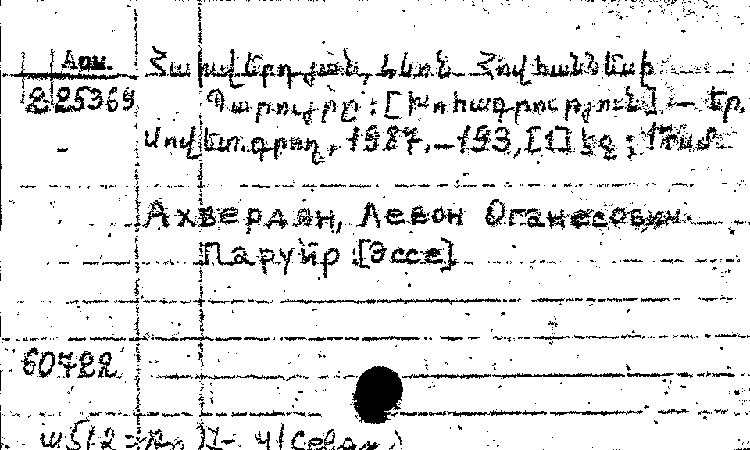 Арм.
Հախվերդյան, Լևոն Հովհաննեսի
2 25369
Պարույրը : [Խոհագրություն] — Եր.
Սովետ. գրող, 1987. — 193, [1] էջ ; 17սմ.
Ахвердян, Левон Оганесович.
Паруйр : [Эссе]
60722